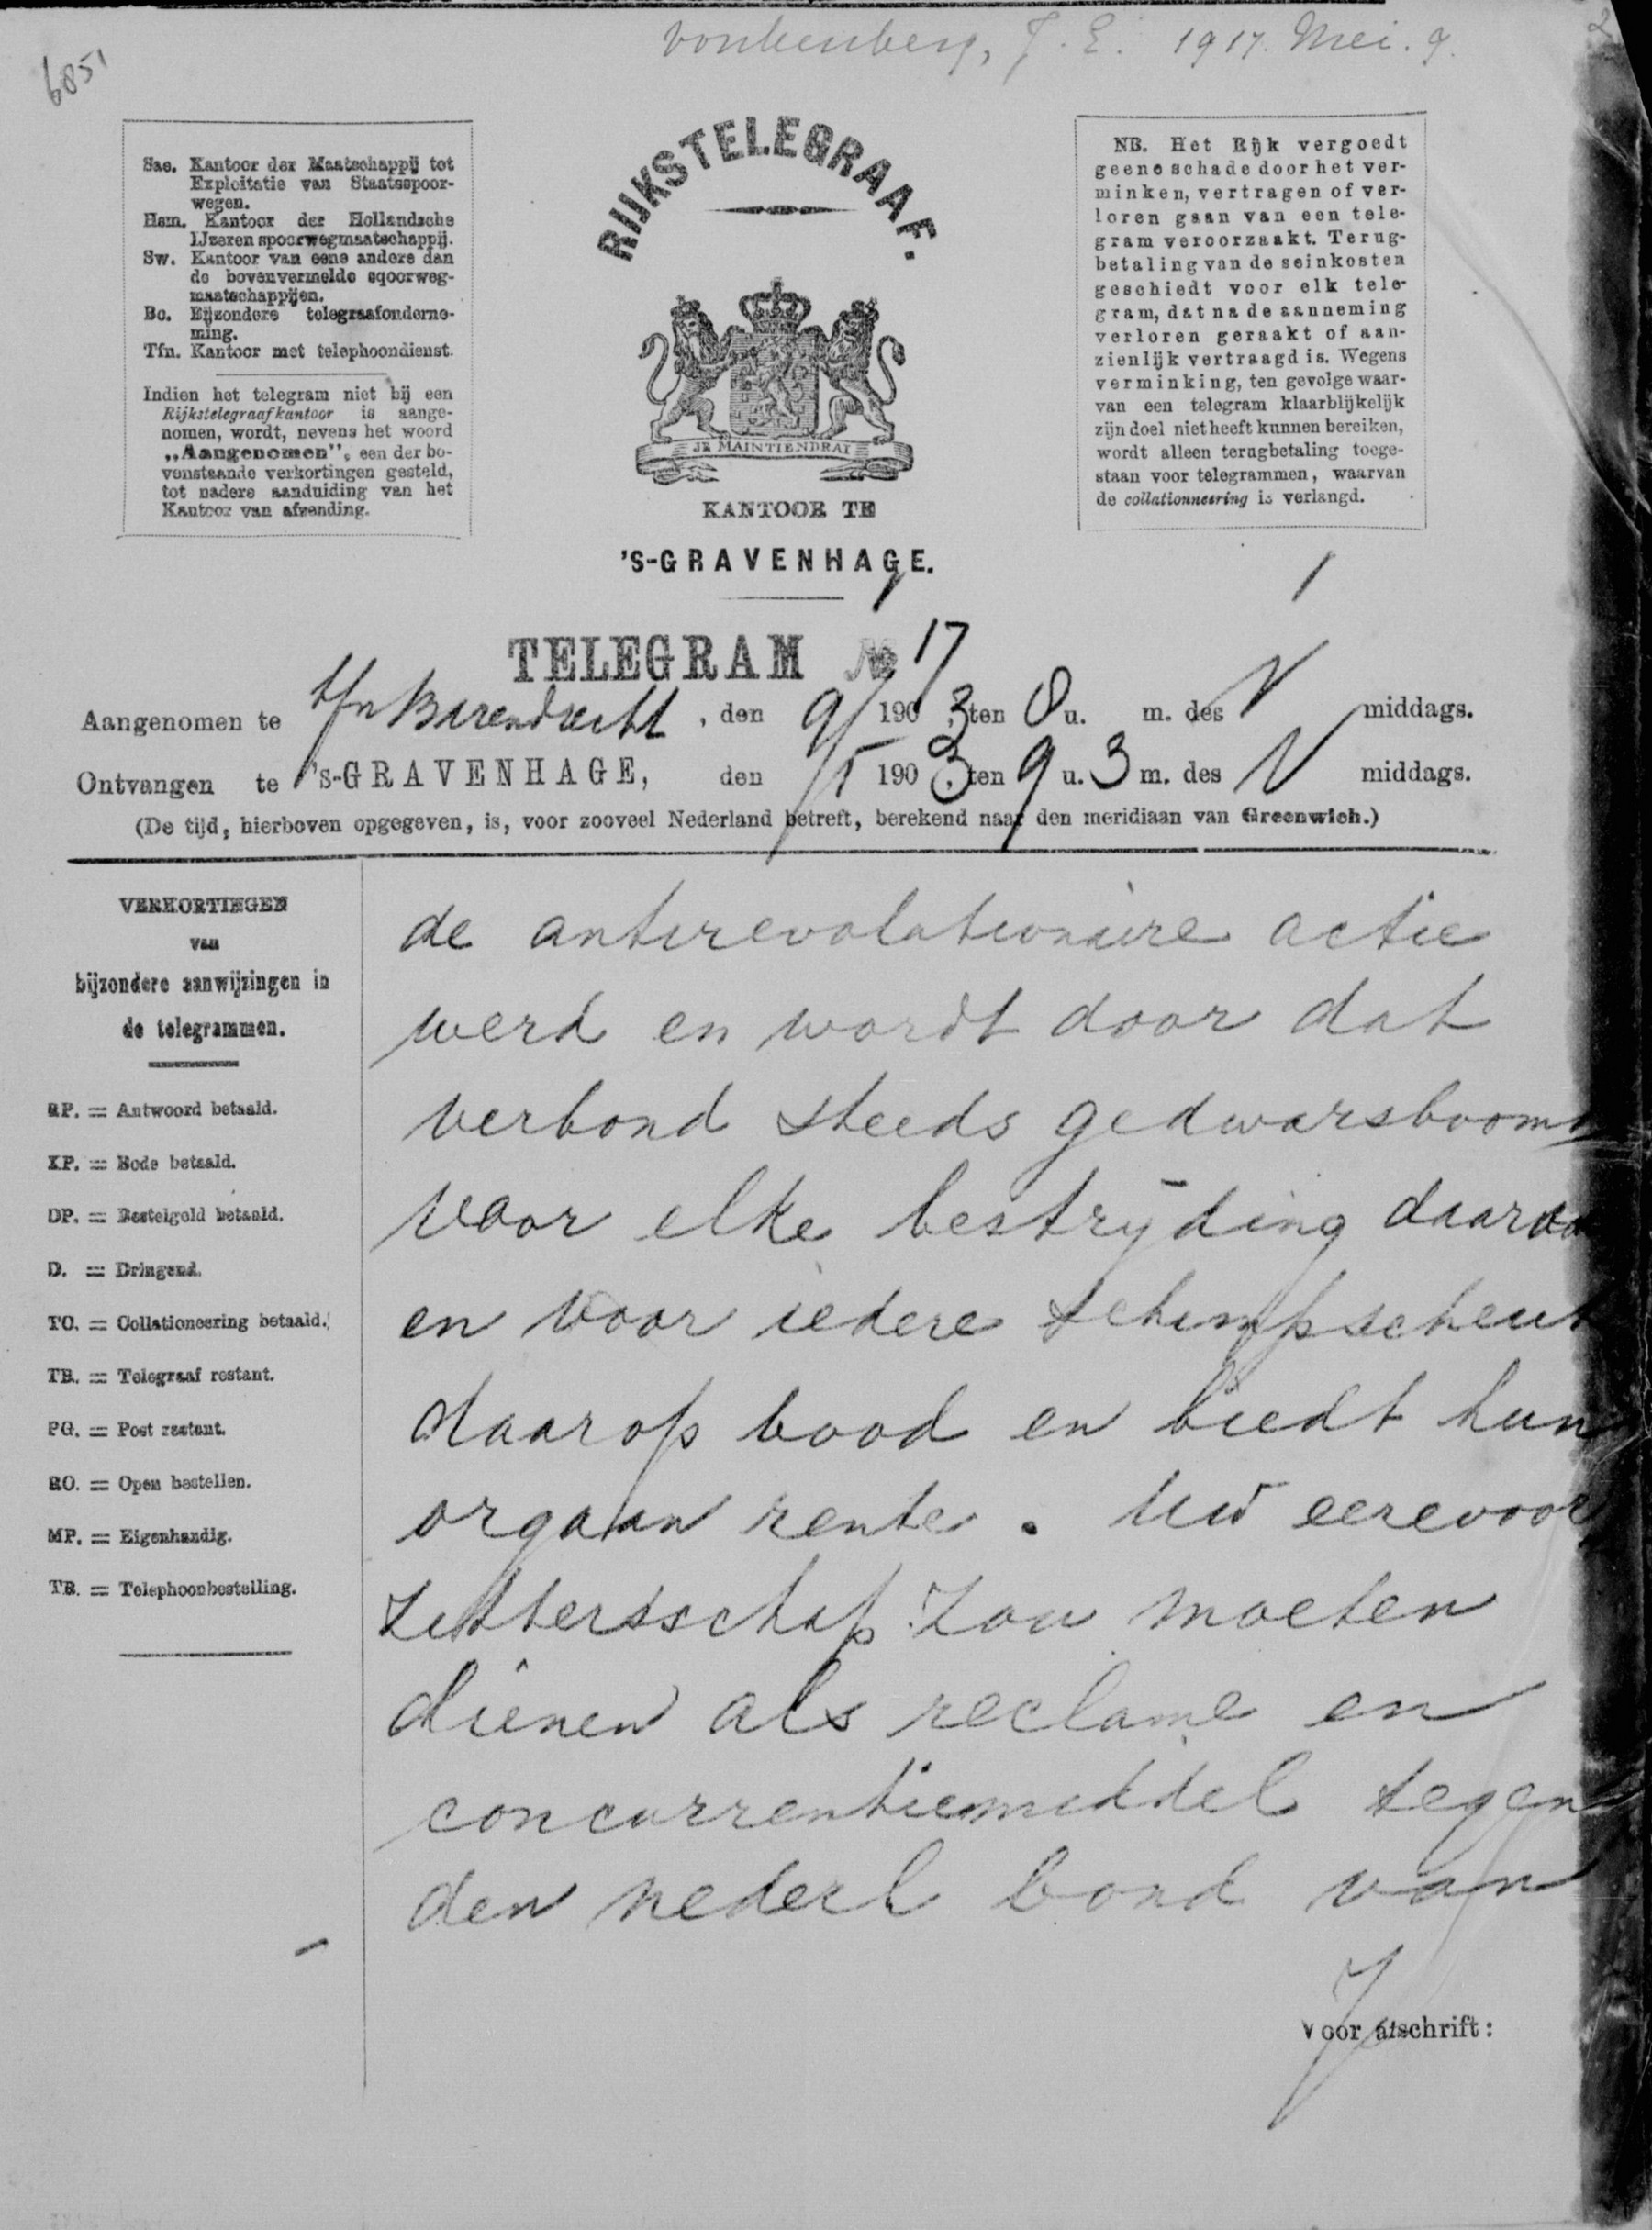 6851
Vonkenberg, J. E. 1917. Mei. 9.
2
Sae. Kantoor der Maatschappij tot
Exploitatie van Staatsspoor-
wegen.
Hsm. Kantoor der Hollandsche
IJzeren spoorwegmaatschappij.
Sw. Kantoor van eene andere dan
de bovenvermelde sqoorweg-
maatschappijen.
Bo. Bijzondere telegraafonderne-
ming.
Tfn. Kantoor met telephoondienst.
Indien het telegram niet bij een
Rijkstelegraafkantoor is aange-
nomen, wordt, nevens het woord
„Aangenomen", een der bo-
venstaande verkortingen gesteld,
tot nadere aanduiding van het
Kantoor van afzending.
RIJKSTELEGRAAF.
JE MAINTIENDRAI
KANTOOR TE
'S-GRAVENHAGE.
NB. Het Rijk vergoedt
geene schade door het ver-
minken, vertragen of ver-
loren gaan van een tele-
gram veroorzaakt. Terug-
betaling van de seinkosten
geschiedt voor elk tele-
gram, dat na de aanneming
verloren geraakt of aan-
zienlijk vertraagd is. Wegens
verminking, ten gevolge waar-
van een telegram klaarblijkelijk
zijn doel niet heeft kunnen bereiken,
wordt alleen terugbetaling toege-
staan voor telegrammen, waarvan
de collationneering is verlangd.
TELEGRAM No 17
Aangenomen te tfn Barendrecht, den 9/ 190 3 ten 8 u. m. des N middags.
Ontvangen te 's-GRAVENHAGE, den /5 190 3 ten 9 u. 3 m. des N middags.
(De tijd, hierboven opgegeven, is, voor zooveel Nederland betreft, berekend naar den meridiaan van Greenwich.)
VERKORTINGEN
van
bijzondere aanwijzingen in
de telegrammen.
RP. = Antwoord betaald.
XP. = Bode betaald.
DP. = Bestelgeld betaald.
D. = Dringend.
TC. = Collationeering betaald.
TR. = Telegraaf restant.
PG. = Post restant.
RO. = Open bestellen.
MP. = Eigenhandig.
TB. = Telephoonbestelling.
de antirevolutionaire actie
werd en wordt door dat
verbond steeds gedwarsboomd
voor elke bestrijding
en voor iedere schimpscheut
daarop bood en biedt hun
orgaan rente. Uw eerevoor
zittersschap zou moeten
dienen als reclame en
concurrentiemiddel tegen
den nederl bond van
Voor afschrift: